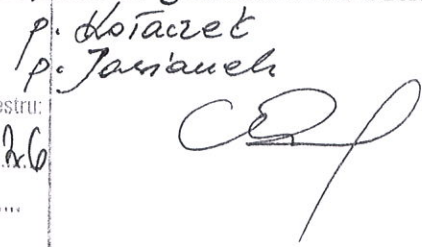 p. Kołaczek
p. Jasianek
estru:
26
....